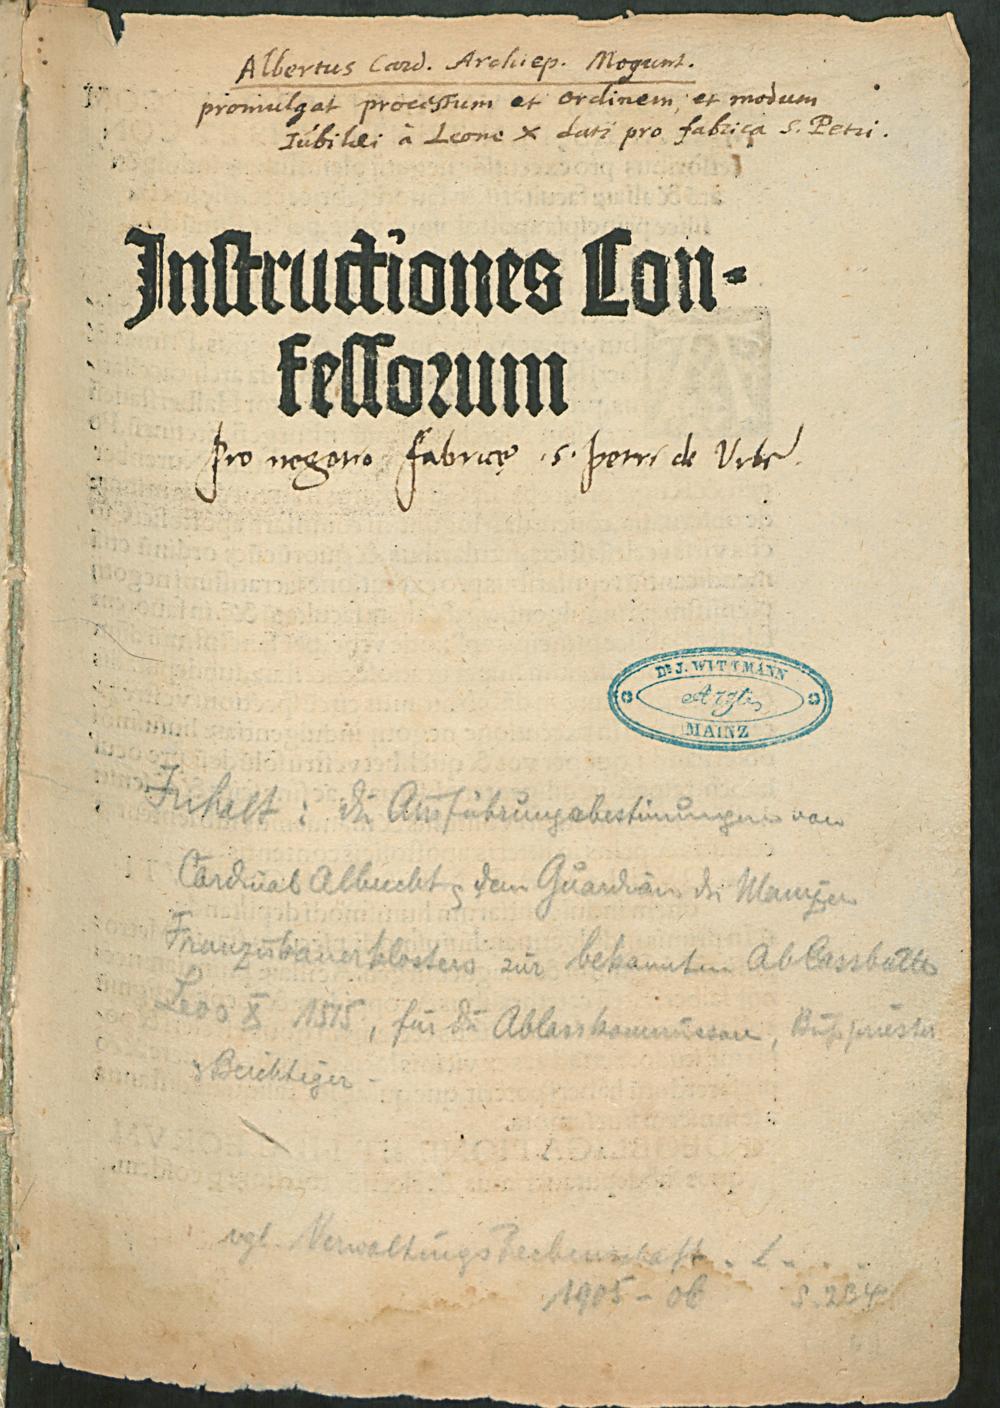 Albertus Card. Archiep. Mogunt.
promulgat processum et ordinem, et modum
Iubilei à Leone X dati pro fabrica S. Petri.
Instructiones Con-
fessorum
pro negotio fabricę .s. petri de Urbe.
Dr. J. WITTMANN
Arzt
MAINZ
Inhalt: die Ausführungsbestimmungen von
Cardinal Albrecht u dem Guardian des Mainzer
Franziskanerklosters zur bekannten Ablassbulle
Leos X 1515, für die Ablasskommissare, Bußpriester
u Beichtiger -
vgl. Verwaltungs Rechenschaft
1905-06 S. 234